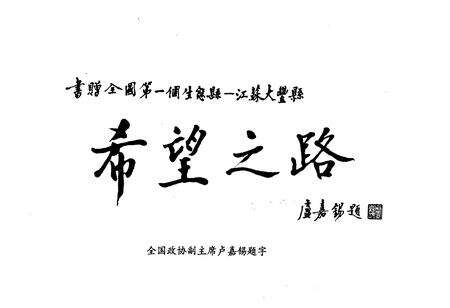 書贈全國第一個生態縣—江蘇大豐縣
希望之路
盧嘉錫題
全国政协副主席卢嘉锡题字